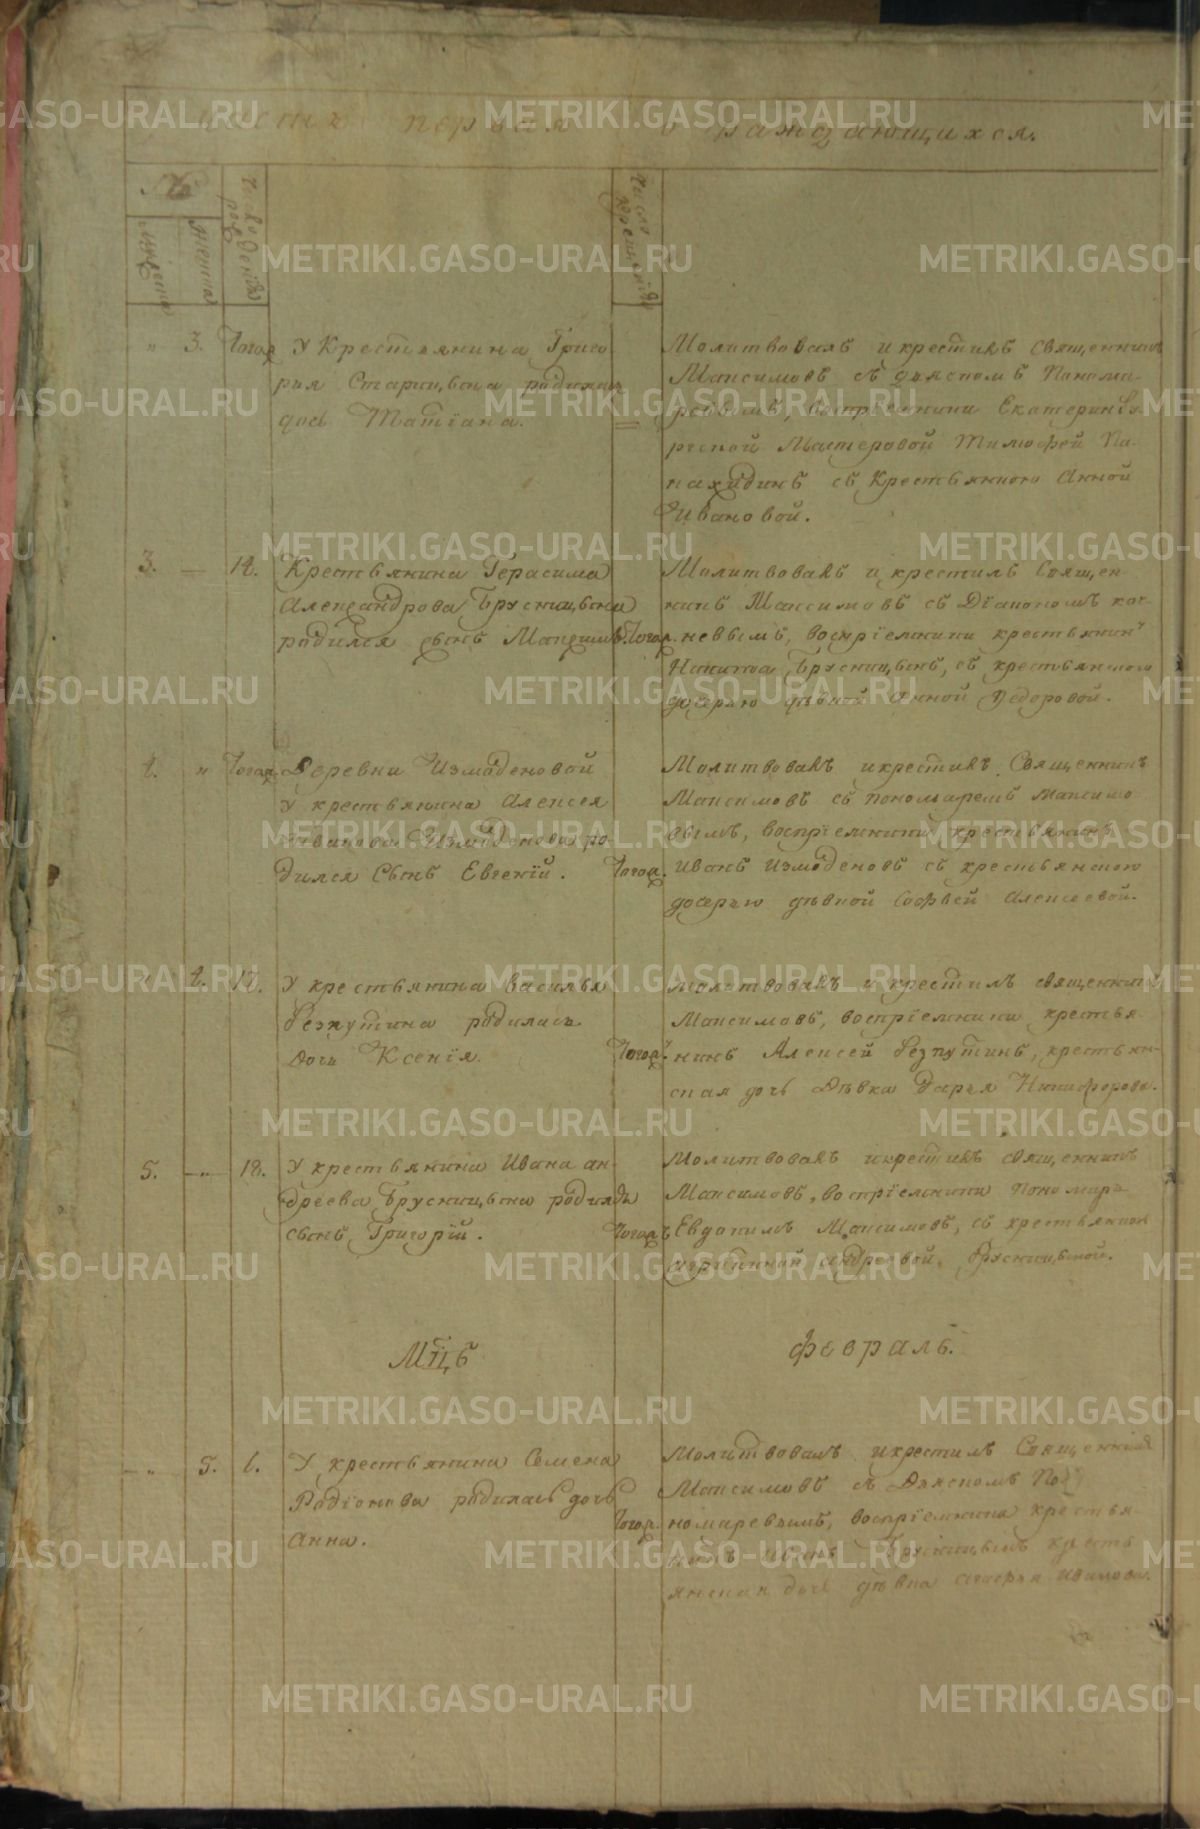 Часть первая о раждающихся.
№
Число рождения
Число крещения
мужеска
женска
„ 3. Тогож У Крестьянина Григо
рья Старицына родилась
дочь Татiана.
Молитвовалъ и крестилъ Священникъ
Максимовъ съ дьячкомъ Понома
ревымъ, воспрiемники Екатеринбу
ргской Мастеровой Тимофей Па
нахидинъ съ Крестьянкою Анной
Ивановой.
3. — 14. Крестьянина Герасима
Александрова Брусницына
родился сынъ Максимъ. Тогож.
Молитвовалъ и крестилъ Священ
никъ Максимовъ съ Дiакономъ
невымъ, воспрiемники крестьянинъ
Никита Брусницынъ, съ крестьянскою
дочерью дѣвкой Анной Федоровой.
4. „ Тогож. Деревни Измоденовой
У крестьянина Алексея
Иванова Измоденова ро
дился Сынъ Евгенiй. Тогож.
Молитвовалъ и крестилъ Священникъ
Максимовъ съ пономаремъ Максимо
вымъ, воспрiемники крестьянинъ
Иванъ Измоденовъ съ крестьянскою
дочерью дѣвкой Софьей Алексеевой.
„ 4. 17. У крестьянина Василья
Резпутина родилась
дочь Ксенiя. Тогож.
Молитвовалъ и крестилъ священникъ
Максимовъ, воспрiемники крестья
нинъ Алексей Резпутинъ, крестьян
ская дочь Дѣвка Дарья Никифорова.
5. — „ 18. У крестьянина Ивана Ан
дреева Брусницына родился
сынъ Григорiй. Тогож
Молитвовалъ и крестилъ священникъ
Максимовъ, воспрiемники Пономарь
Евдокимъ Максимовъ, съ крестьянкой
Агрипиной Андреевой Брусницыной.
Мцъ Февраль.
— „ 5. 6. У крестьянина Семена
Родiонова родилась дочь
Анна. Тогож.
Молитвовалъ и крестилъ Священникъ
Максимовъ съ Дьячкомъ По
номаревымъ, воспрiемники крестья
нинъ Иванъ Брусницынъ кресть
янская дочь дѣвка Ивановa.
METRIKI.GASO-URAL.RU